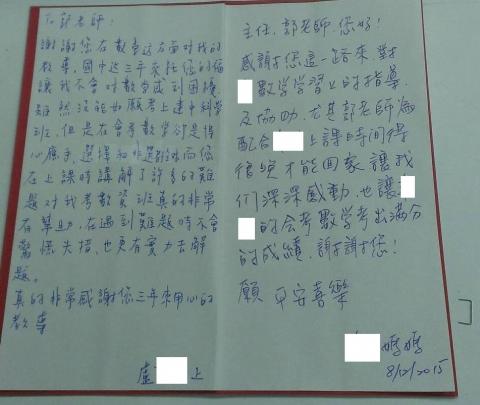 To 郭老師:
謝謝您在數學這方面對我的
教導,國中這三年來托您的福
讓我不會對數學感到困擾
雖然沒能如願考上建中科學
班,但是在會考數學卻是得
心應手,選擇和非選
在上課時講解了許多的難
題對我考數資班真的非常
有幫助,在遇到難題時不會
驚慌失措,也更有實力去解
題。
真的非常感謝您三年來用心的
教導
盧 上
主任,郭老師,您好!
感謝您這一路來,對
數学学習上的指導
及協助,尤其郭老師為
配合 上課時間得
很晚才能回家,讓我
們深深感動,也讓
的会考数学考出滿分
的成績,謝謝您!
願 平安喜樂
媽媽
8/12/2015